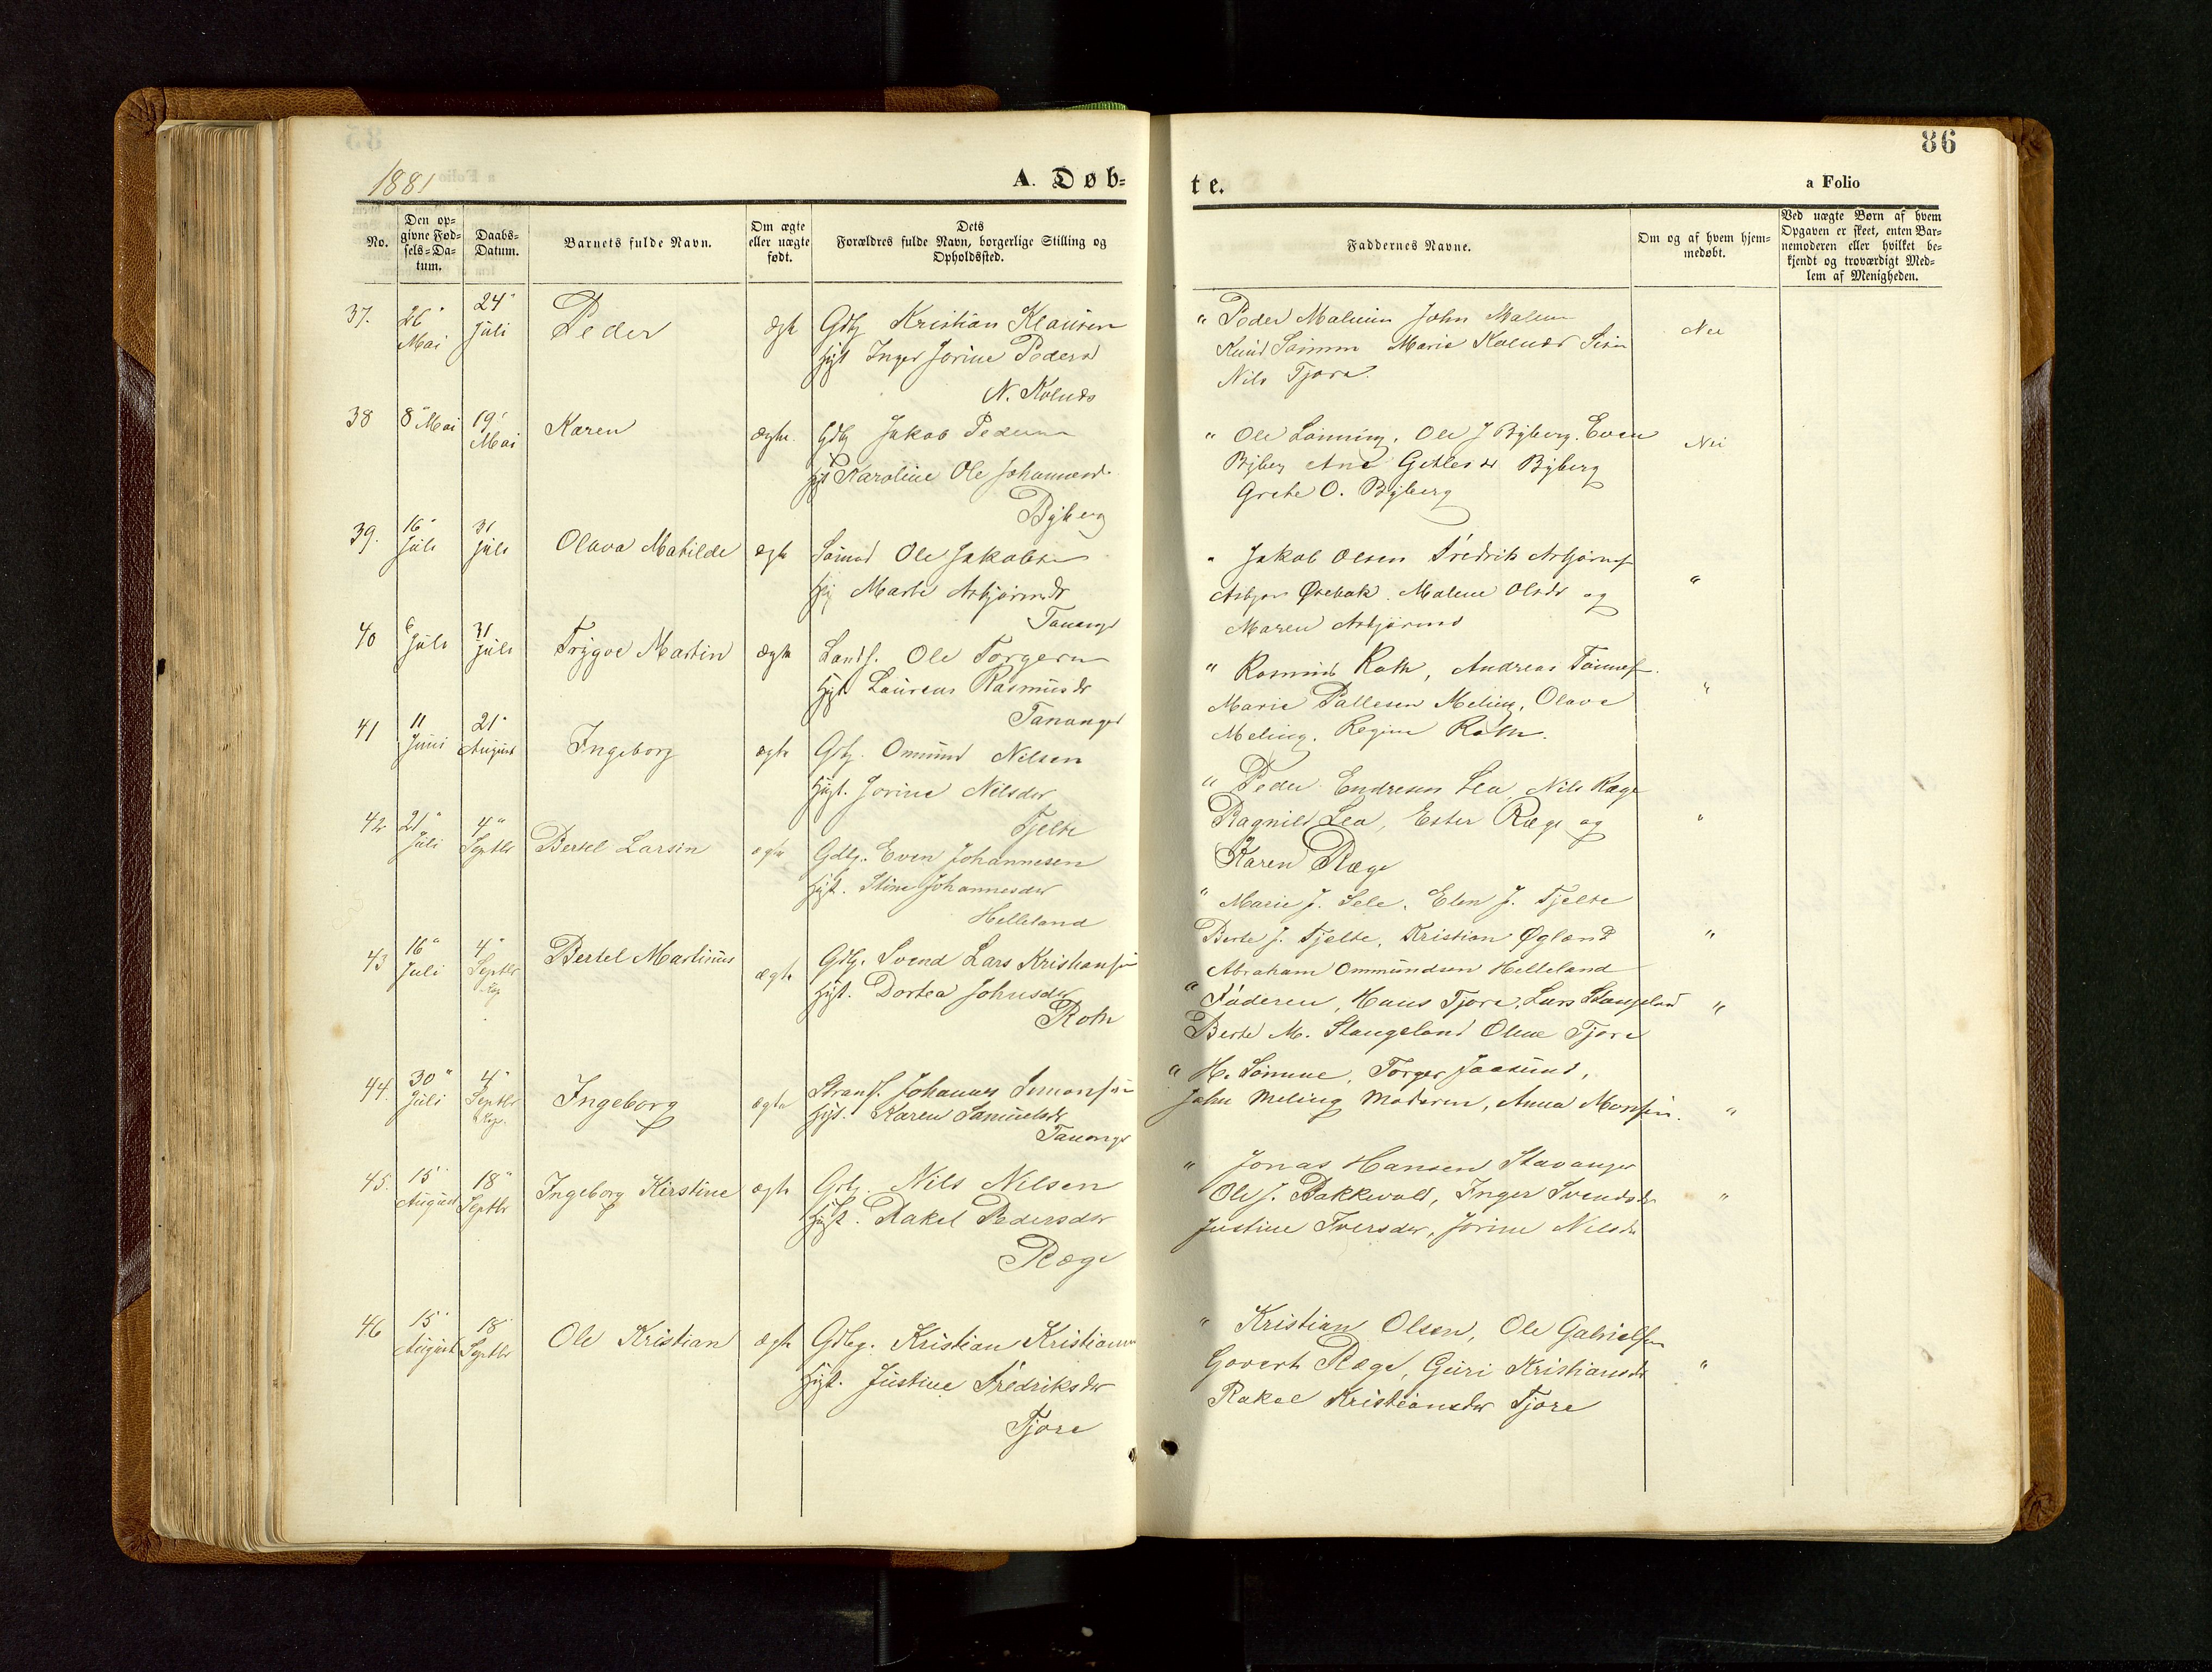 86
1881
A. Døb=
te.
a Folio
No.
Den op=
givne Fød=
sels=Da=
tum.
Daabs=
Datum.
Barnets fulde Navn.
Om ægte
eller uægte
født.
Dets
Forældres fulde Navn, borgerlige Stilling og
Opholdssted.
Faddernes Navne.
Om og af hvem hjem=
medøbt.
Ved uægte Børn af hvem
Opgaven er skeet, enten Bar=
nemoderen eller hvilket be=
kjendt og troværdigt Med=
lem af Menigheden.
37. 26" Mai 24" Juli Peder ægte Gdbg Kristian Klausen
Hust Inger Jorine Pedersd
N. Kolnes
" Peder Malmin John Malmin
Knud Sømme Marie Kolnes
Nils Tjora.
Nei
38 8" Mai 19' Mai Karen ægte. Gdbg Jakob Pedersen
Hust Karoline Ole Johannesd.
Byberg
" Ole Lønning, Ole J Byberg. Even
Byberg Ane Byberg
Grete O. Byberg
Nei
39. 16" Juli 31 Juli Olava Matilde ægte Sømd Ole Jakobsen
Hust Marte Asbjørnsdr
Tananger
" Jakob Olsen Fredrik Asbjørnsen
Asbjørn Malene Olsdr og
Maren Asbjørnsd
"
40 6 Juli 31 Juli Trygve Martin ægte Ole Torgersen
Hust Laurens Rasmusdr
Tananger
" Rasmus Roth, Andreas
Marie Pallesen Meling, Olava
Meling. Regine Roth.
"
41 11 Juni 21" August Ingeborg ægte Gbg. Ommund Nilsen
Hust. Jorine Nilsdr
Tjelte
" Peder Endresen Lea, Nils Ræge
Ragnild Lea, Ester Ræge og
Karen Ræge
"
42 21" Juli 4" Septbr Bertel Larsin ægte Gdbg. Even Johannesen
Hust. Stine Johannesdr
Helleland
" Marie J. Sele. Elen J. Tjelte
Berte J. Tjelte, Kristian Øgland
Abraham Ommundsen Helleland
"
43 16" Juli 4" Septbr Bertel Martinus ægte Gdbg. Svend Lars Kristiansen
Hust. Dortea Johnsdr
Roth
" Faderen, Hans Tjora, Lars Stangeland
Berte M. Stangeland Oline Tjora
"
44. 30" Juli 4" Septbr Ingeborg ægte Strands. Johannes Simonsen
Hust. Karen Samuelsdr
Tananger
" H. Sømme, Torger Jaasund,
John Meling Moderen, Anna Monsen.
"
45. 15 August 18" Septbr Ingeborg Kirstine ægte Gbg. Nils Nilsen
Hust. Rakel Pedersdr
Ræge
" Jonas Hansen Stavanger
Ole J. Bakkevold, Inger Svendsdr
Justine Iversdr, Jorine Nilsdr
"
46 15" August 18 Septbr Ole Kristian ægte Gdbg. Kristian Kristiansen
Hust. Justine Fredriksdr
Tjora
" Kristian Olsen, Ole Gabrielsen
Govert Ræge, Guri Kristiansdr
Rakel Kristiansdr Tjora
"